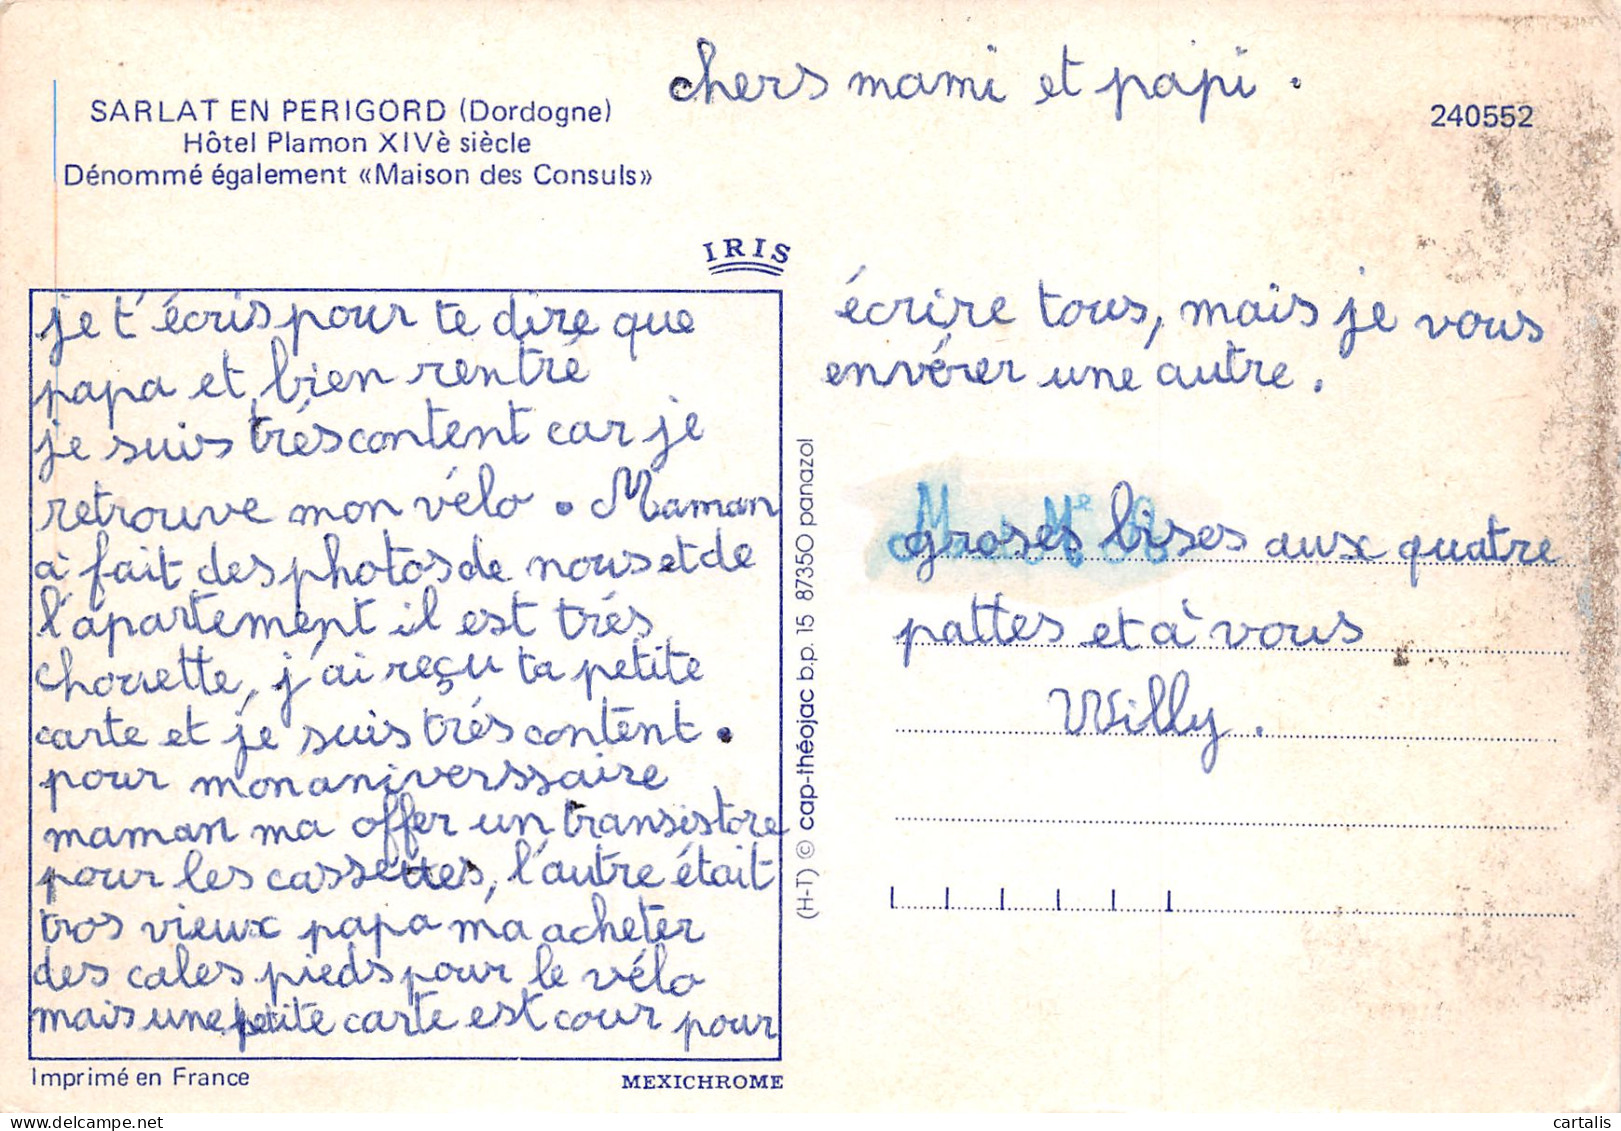 chers mami et papi.
SARLAT EN PERIGORD (Dordogne)
Hôtel Plamon XIVè siècle
Dénommé également «Maison des Consuls»
240552
IRIS
je t'écris pour te dire que
papa et bien rentré
je suis trés content car je
retrouve mon vélo. Maman
a fait des photos de nous et de
l'apartement il est trés
chouette, j'ai reçu ta petite
carte et je suis trés content.
pour mon aniverssaire
maman ma offer un transistore
pour les cassettes, l'autre était
tros vieux papa ma acheter
des cales pieds pour le vélo
mais une petite carte est cour pour
écrire tous, mais je vous
envérer une autre.
groses bises aux quatre
pattes et à vous
Willy.
(H-T) © cap-théojac b.p. 15 87350 panazol
Imprimé en France
MEXICHROME
cartalis
www.delcampe.net